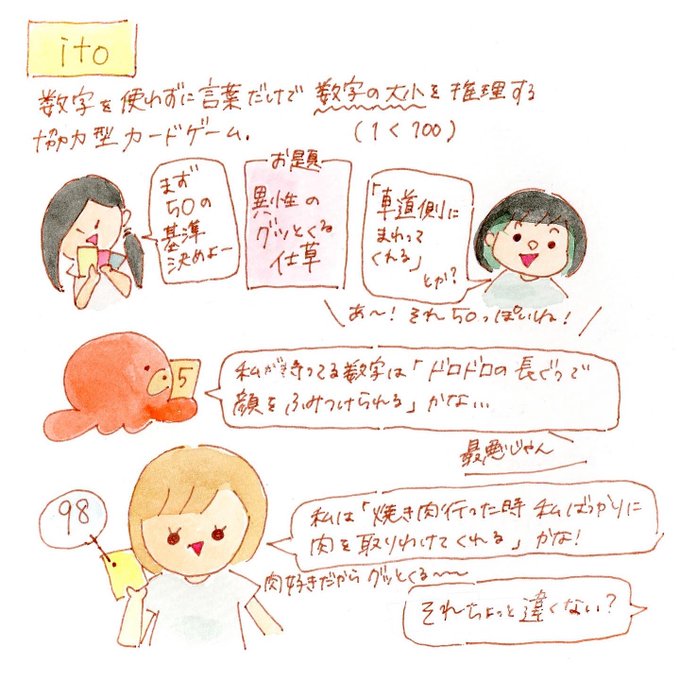 ito
数字を使わずに言葉だけで数字の大小を推理する
協力型カードゲーム.
(1<100)
まず
50の
基準
決めよー
お題
異性の
グッとくる
仕草
「車道側に
まわって
くれる」
とか?
あ〜! それ50っぽいね!
5
私が持ってる数字は「ドロドロの長ぐつで
顔をふみつけられる」かな...
最悪じゃん
98
私は「焼き肉行った時私ばっかりに
肉を取りわけてくれる」かな!
肉好きだからグッとくる〜〜
それちょっと違くない?